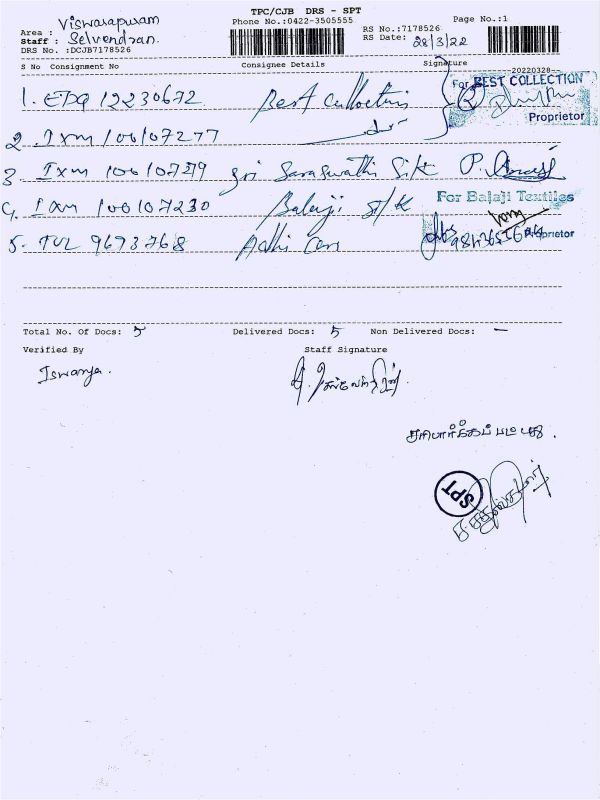 TPC/CJB DRS - SPT
Area : Viswasapuram
Phone No.:0422-3505555
Page No.:1
Staff : Selvendran.
RS No.:7178526
DRS No. :DCJB7178526
RS Date: 28/3/22
S No Consignment No Consignee Details Signature
--20220328--
1. EDQ 12230672 Best Collections
For BEST COLLECTION
Proprietor
2. Ixm 100107277 -do-
3. Ixm 100107279 Sri Saraswathi Silk P.
4. Ixm 100107230 Balaji s/k
For Balaji Textiles
Proprietor
5. TUL 9673768 Adhi Care
Total No. Of Docs: 5 Delivered Docs: 5 Non Delivered Docs: -
Verified By Staff Signature
Iswarya.
சரிபார்க்கப் பட்டது.
SPT